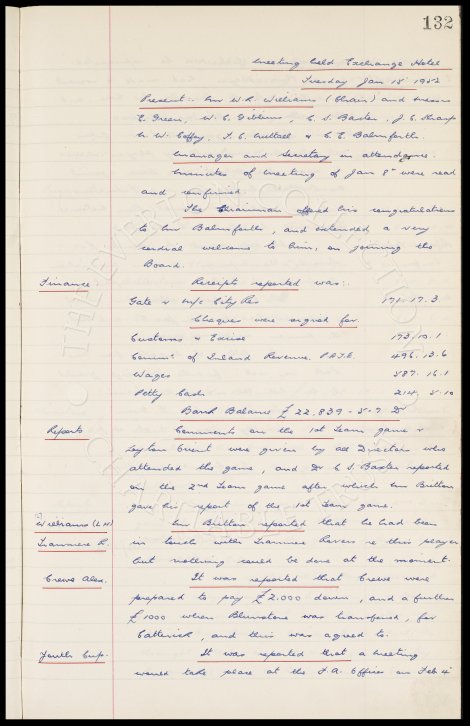 132
Meeting held Exchange Hotel
Tuesday Jan 15th 1952
Present:- Mr W.R. Williams (Chair) and Messrs
E. Green, W.C. Gibbins, C.S. Baxter, J.C. Sharp
N.W. Coffey, F.C. Nuttall & C.E. Balmforth
Manager and Secretary in attendance.
Minutes of meeting of Jan 8th were read
and confirmed.
The Chairman offered his congratulations
to Mr Balmforth, and extended a very
cordial welcome to him, on joining the
Board.
Finance. Receipts reported was:-
Gate v M/c City Res 171.17.3
Cheques were signed for.
Customs & Excise 173.19.1
Commrs of Inland Revenue P.A.Y.E. 496.13.6
Wages 587.16.1
Petty Cash 214. 5.10
Bank Balance £22,839-5-7 Dr
Reports Comments on the 1st Team game v
Leyton Orient were given by all Directors who
attended the game, and Dr C.S. Baxter reported
on the 2nd Team game after which Mr Britton
gave his report of the 1st Team game.
Williams (L.H) Mr Britton reported that he had been
Tranmere R. in touch with Tranmere Rovers re this player
but nothing could be done at the moment.
Crewe Alex. It was reported that Crewe were
prepared to pay £2.000 down, and a further
£1000 when Blunstone was transferred, for
Catterick, and this was agreed to.
Youth Cup. It was reported that a Meeting
would take place at the F.A. Offices on Feb 4th
THE EVERTON COLLECTION
CHARITABLE TRUST